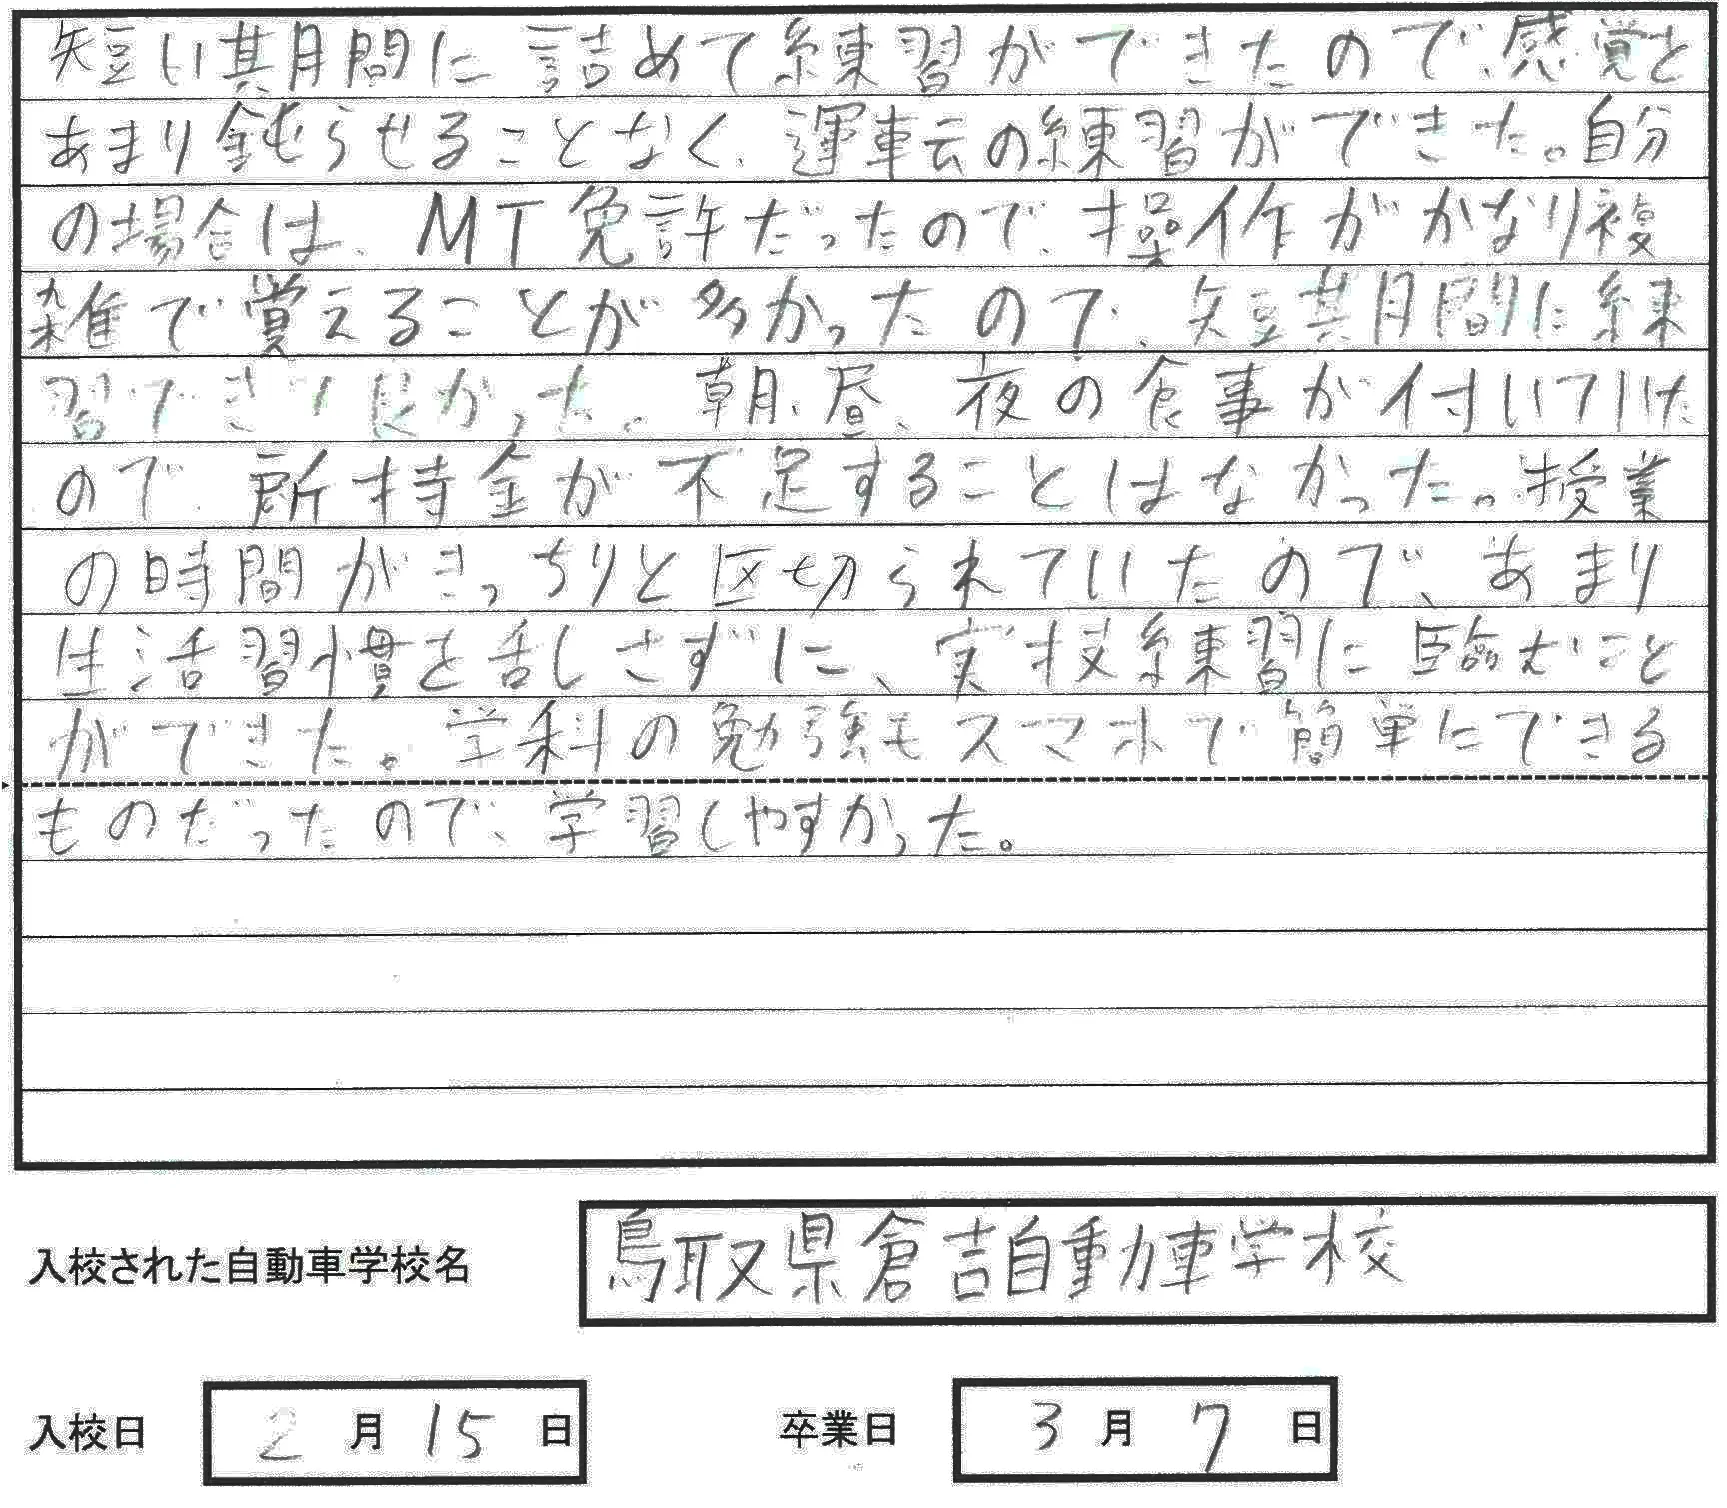 短い期間に詰めて練習ができたので、感覚を
あまり鈍らせることなく、運転の練習ができた。自分
の場合は、MT免許だったので、操作がかなり複
雑で覚えることが多かったので、短期間に練
習できて良かった。朝、昼、夜の食事が付いていた
ので、所持金が不足することはなかった。授業
の時間がきっちりと区切られていたので、あまり
生活習慣を乱しさずに、実技練習に臨むこと
ができた。学科の勉強もスマホで簡単にできる
ものだったので、学習しやすかった。
入校された自動車学校名 鳥取県倉吉自動車学校
入校日 2月15日 卒業日 3月7日